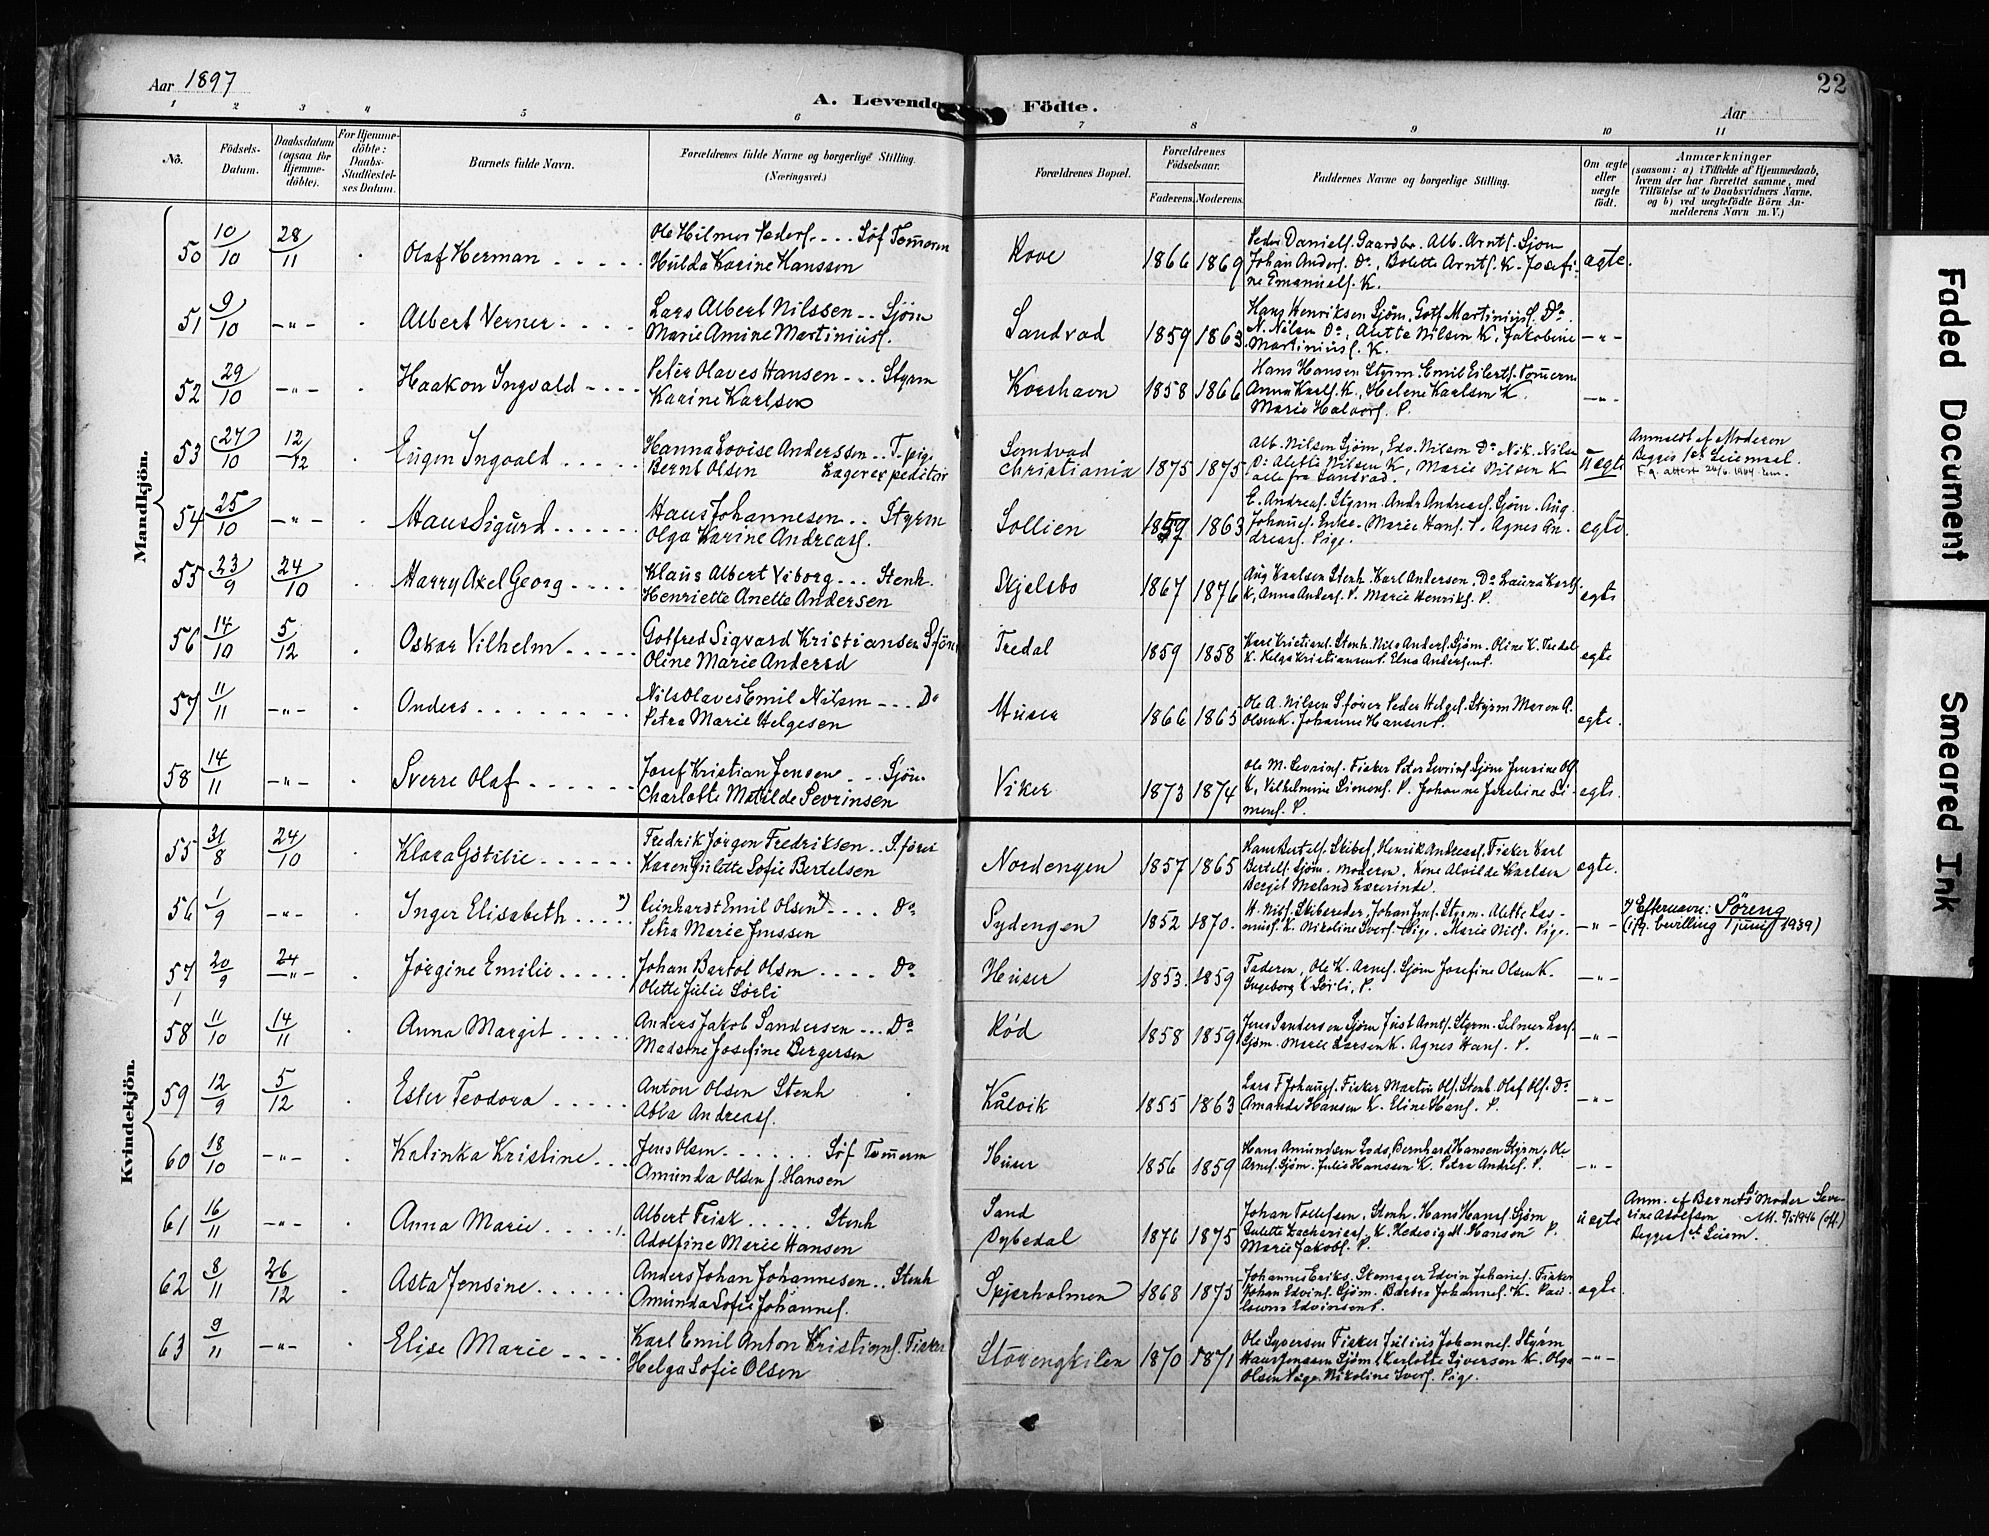 Aar 1897
A. Levende Födte.
22
Aar
1 2 3 4 5 6 7 8 9 10 11
No.
Födsels-Datum.
Daabsdatum (ogsaa for Hjemme-döbte).
For Hjemme-döbte: Daabs-Stadfæstel-ses Datum.
Barnets fulde Navn.
Forældrenes fulde Navne og borgerlige Stilling. (Næringsvei.)
Forældrenes Bopæl.
Forældrenes Födselsaar.
Faderens. Moderens.
Faddernes Navne og borgerlige Stilling.
Om ægte eller uægte födt.
Anmærkninger
(saasom: a) i Tilfælde af Hjemmedaab,
hvem der har forrettet samme, med
Tilföielse af to Daabsvidners Navne,
og b) ved uægtefödte Börn An-
melderens Navn m. V.)
Mandkjön.
50 10/10 28/11 Olaf Herman Ole Hilmer Peders. Søf Tømmerm
Hulda Karine Hanssen Rove 1866 1869 ægte.
Peder Daniels. Gaardbr. Alb. Arnts. Sjøm
Johan Anders. Do, Bolette Arnts. K. Josefi-
ne Emanuels. K.
51 9/10 —„— Albert Verner Lars Albert Nilssen Sjøm
Marie Amine Martiniuss. Sandvad 1859 1863 —„—
Hans Henriksen Sjøm. Gotf Martiniuss. Do.
N. Nilsen Do, Alette Nilsen K. Jakobine
Martiniuss. K.
52 29/10 —„— Haakon Ingvald Peter Olaves Hansen Styrm
Karine Karlsen Korshavn 1858 1866 —„—
Hans Hansen Styrm. Emil Eilerts. Tømerm
Anna Karls. K., Helene Karlsen K.
Marie Halvors. P.
53 27/10 12/12 Eugen Ingvald Hanna Lovise Anderssen T. pig.
Bernt Olsen Lagerexpeditør Sandvad
Christiania 1875 1875 uægte
Alb. Nilsen Sjøm, Edv. Nilsen Do Nik. Nilsen
Do Alette Nilsen K, Marie Nilsen K
alle fra Sandvad.
Anmeldt af Moderen
Begges 1st Leiemaal.
54 25/10 —„— Hans Sigurd Hans Johannesen Styrm
Olga Karine Andreass. Sollien 1859 1863 ægte.
E. Andreas. Styrm. Andr. Andreass. Sjøm. Aug.
Johans. Enke. Marie Hans. P. Agnes An-
dreass. Pige.
55 23/9 24/10 Harry Axel Georg Klaus Albert Viborg Stenh.
Henriette Anette Andersen Skjelsbo 1867 1876 ægte
Aug Karlsen Stenh. Karl Andersen. Do Laura Karls.
K, Anna Anders. P. Marie Henriks. P.
56 14/10 5/12 Oskar Vilhelm Gotfred Sigvard Kristiansen Sjøm
Oline Marie Andersd Tredal 1859 1858 ægte
Karl Kristians. Stenh. Nils Anders. Sjøm. Oline K. Tredal
K. Helga Kristiansen P. Elna Andersen P.
57 11/11 —„— Anders Nils Olaves Emil Nilsen Do
Petra Marie Helgesen Huser 1866 1865 ægte.
Ole A. Nilsen S.fører Peder Helges. Styrm Maren A.
Olsen K. Johanne Hansen P.
58 14/11 —„— Sverre Olaf Josef Kristian Jensen Sjøm.
Charlotte Matilde Sevrinsen Viker 1873 1874 ægte.
Ole M. Sevrins. Fisker Peter Sevrins. Sjøm Jensine Ols
K, Vilhelmine Simons. P. Johanne Josebine Si-
mons. P.
Kvindekjön.
55 31/8 24/10 Klara Fredrik Jørgen Fredriksen S.fører
Karen Gulette Sofie Bertelsen Nordengen 1857 1865 ægte.
Hans Bertels. Skibsf, Henrik Andreass. Fisker Karl
Bertels. Sjøm. Moderen. Kone Alvilde Karlsen
Bergit Meland Lærerinde.
56 1/9 —„— Inger Elisabeth x) Reinhardt Emil Olsen x) Do
Petra Marie Jenssen Sydengen 1852 1870. —„—
H. Nils. Skibsreder, Johan Jens. Styrm. Alette Ras-
muss. K. Nikoline Ivers. Pige. Marie Nils. Pige.
x) Efternavn: Søreng
(ifg. bevilling 1/juni 1939)
57 20/9 24 —„— Jørgine Emilie Johan Bertol Olsen Do
Olette Julie Sørli Huser 1853. 1859 —„—
Faderen, Ole K. Arnes. Sjøm Josefine Olsen K.
Ingeborg K Sørli, P.
58 11/10 14/11 Anna Margit Anders Jakob Sandersen Do
Madsine Josefine Bergersen Rød 1858 1859 —„—
Jens Sandersen Sjøm Just Arnts. Styrm. Selmer Lars.
Sjøm. Marie Larsen K. Agnes Hans. P.
59 12/9 5/12 Ester Teodora Anton Olsen Stenh
Abla Andreass. Kålvik 1855 1863 —„—
Lars F Johans. Fisker Martin Ols. Stenh. Olaf Ols. Do
Amanda Hansen K. Eline Hans. P.
60 18/10 —„— Kalinka Kristine Jens Olsen Søf Tømerm
Amunda Olsen f. Hansen Huser 1856 1859 —„—
Hans Amundsen Lods, Bernhard Hansen Styrm, Ole
Arnes. Sjøm. Julie Hanssen K. Petra Andres. P.
61 16/11 —„— Anna Marie Albert Frisk Stenh
Adolfine Marie Hansen Sand
Dybedal 1876 1875 uægte
Johan Tollefsen. Stenh. Hans Hans. Sjøm
Gulette Zacharias. K. Hedevig M. Hansen P.
Marie Jakobs. P.
Anm. af Barnets Moder Seve-
rine Adolfsen
Begges 1st Leiem.
62 8/11 26/12 Asta Jensine Anders Johan Johannesen Stenh
Amunda Sofie Johannes. Spjærholmen 1868 1875 ægte.
Johannes Eriks. Edvin Johans. Fisker
Johan Edvins. Sjøm. Barbra Johannes. K. Pau-
63 9/11 —„— Elise Marie Karl Emil Anton Kristians. Fisker
Helga Sofie Olsen Størengkilen 1870 1871 —„—
Ole Syversen Fisker Julius Johannes. Styrm
Hans Jenssen Sjøm. Karlotte Syversen K. Olga
Olsen Pige. Nikoline Ivers. Pige.
Faded Document
Smeared Ink